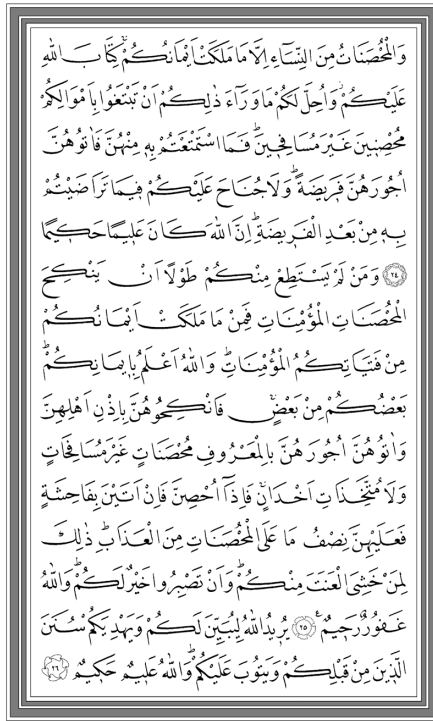 وَالْمُحْصَنَاتُ مِنَ النِّسَٓاءِ اِلَّا مَا مَلَكَتْ اَيْمَانُكُمْۚ كِتَابَ اللّٰهِ
عَلَيْكُمْۚ وَاُحِلَّ لَكُمْ مَا وَرَٓاءَ ذٰلِكُمْ اَنْ تَبْتَغُوا بِاَمْوَالِكُمْ
مُحْصِنٖينَ غَيْرَ مُسَافِحٖينَؕ فَمَا اسْتَمْتَعْتُمْ بِهٖ مِنْهُنَّ فَاٰتُوهُنَّ
اُجُورَهُنَّ فَرٖيضَةًؕ وَلَا جُنَاحَ عَلَيْكُمْ فٖيمَا تَرَاضَيْتُمْ
بِهٖ مِنْ بَعْدِ الْفَرٖيضَةِؕ اِنَّ اللّٰهَ كَانَ عَلٖيمًا حَكٖيمًا
﴿٢٤﴾ وَمَنْ لَمْ يَسْتَطِعْ مِنْكُمْ طَوْلًا اَنْ يَنْكِحَ
الْمُحْصَنَاتِ الْمُؤْمِنَاتِ فَمِنْ مَا مَلَكَتْ اَيْمَانُكُمْ
مِنْ فَتَيَاتِكُمُ الْمُؤْمِنَاتِؕ وَاللّٰهُ اَعْلَمُ بِاٖيمَانِكُمْؕ
بَعْضُكُمْ مِنْ بَعْضٍۚ فَانْكِحُوهُنَّ بِاِذْنِ اَهْلِهِنَّ
وَاٰتُوهُنَّ اُجُورَهُنَّ بِالْمَعْرُوفِ مُحْصَنَاتٍ غَيْرَ مُسَافِحَاتٍ
وَلَا مُتَّخِذَاتِ اَخْدَانٍۚ فَاِذَٓا اُحْصِنَّ فَاِنْ اَتَيْنَ بِفَاحِشَةٍ
فَعَلَيْهِنَّ نِصْفُ مَا عَلَى الْمُحْصَنَاتِ مِنَ الْعَذَابِؕ ذٰلِكَ
لِمَنْ خَشِيَ الْعَنَتَ مِنْكُمْؕ وَاَنْ تَصْبِرُوا خَيْرٌ لَكُمْؕ وَاللّٰهُ
غَفُورٌ رَحٖيمٌ ﴿٢٥﴾ يُرٖيدُ اللّٰهُ لِيُبَيِّنَ لَكُمْ وَيَهْدِيَكُمْ سُنَنَ
الَّذٖينَ مِنْ قَبْلِكُمْ وَيَتُوبَ عَلَيْكُمْؕ وَاللّٰهُ عَلٖيمٌ حَكٖيمٌ ﴿٢٦﴾